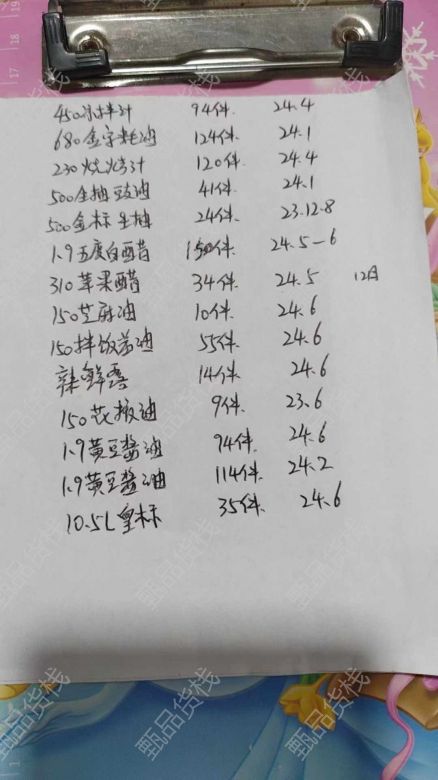 450凉拌汁 94件. 24.4
680金字蚝油 124件. 24.1
230烧烤汁 120件. 24.4
500生抽豉油 41件. 24.1
500金标生抽 24件. 23.12.8
1.9五度白醋 150件. 24.5-6
310苹果醋 34件. 24.5 12日
150芝麻油 10件. 24.6
150拌饭酱油 55件. 24.6
辣鲜露 14件. 24.6
150花椒油 9件. 23.6
1.9黄豆酱油 94件. 24.6
1.9黄豆酱油 114件. 24.2
10.5L皇标 35件. 24.6
甄品货栈